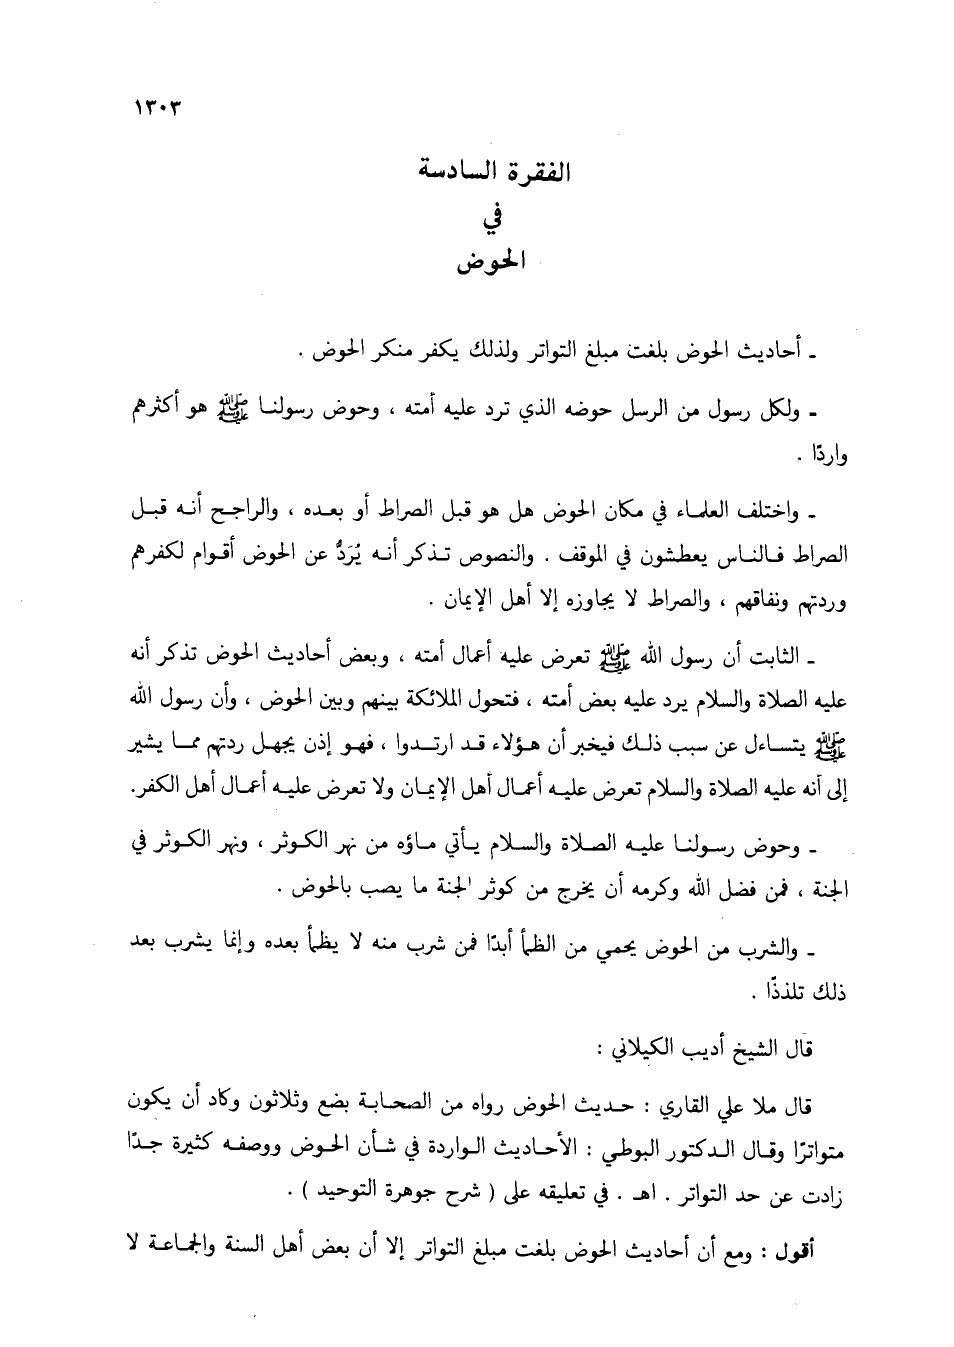 ١٣٠٣
الفقرة السادسة
في
الحوض
ـ أحاديث الحوض بلغت مبلغ التواتر ولذلك يكفر منكر الحوض .
ـ ولكل رسول من الرسل حوضه الذي ترد عليه أمته ، وحوض رسولنا ﷺ هو أكثرهم
واردًا .
ـ واختلف العلماء في مكان الحوض هل هو قبل الصراط أو بعده ، والراجح أنه قبل
الصراط فالناس يعطشون في الموقف . والنصوص تذكر أنه يُرَدُّ عن الحوض أقوام لكفرهم
وردتهم ونفاقهم ، والصراط لا يجاوزه إلا أهل الإيمان .
ـ الثابت أن رسول الله ﷺ تعرض عليه أعمال أمته ، وبعض أحاديث الحوض تذكر أنه
عليه الصلاة والسلام يرد عليه بعض أمته ، فتحول الملائكة بينهم وبين الحوض ، وأن رسول الله
ﷺ يتساءل عن سبب ذلك فيخبر أن هؤلاء قد ارتدوا ، فهو إذن يجهل ردتهم مما يشير
إلى أنه عليه الصلاة والسلام تعرض عليه أعمال أهل الإيمان ولا تعرض عليه أعمال أهل الكفر.
ـ وحوض رسولنا عليه الصلاة والسلام يأتي ماؤه من نهر الكوثر ، ونهر الكوثر في
الجنة ، فمن فضل الله وكرمه أن يخرج من كوثر الجنة ما يصب بالحوض .
ـ والشرب من الحوض يحمي من الظمأ أبدًا فمن شرب منه لا يظمأ بعده وإنما يشرب بعد
ذلك تلذذًا .
قال الشيخ أديب الكيلاني :
قال ملا علي القاري : حديث الحوض رواه من الصحابة بضع وثلاثون وكاد أن يكون
متواترًا وقال الدكتور البوطي : الأحاديث الواردة في شأن الحوض ووصفه كثيرة جدًا
زادت عن حد التواتر . اهـ . في تعليقه على ( شرح جوهرة التوحيد ) .
أقول : ومع أن أحاديث الحوض بلغت مبلغ التواتر إلا أن بعض أهل السنة والجماعة لا